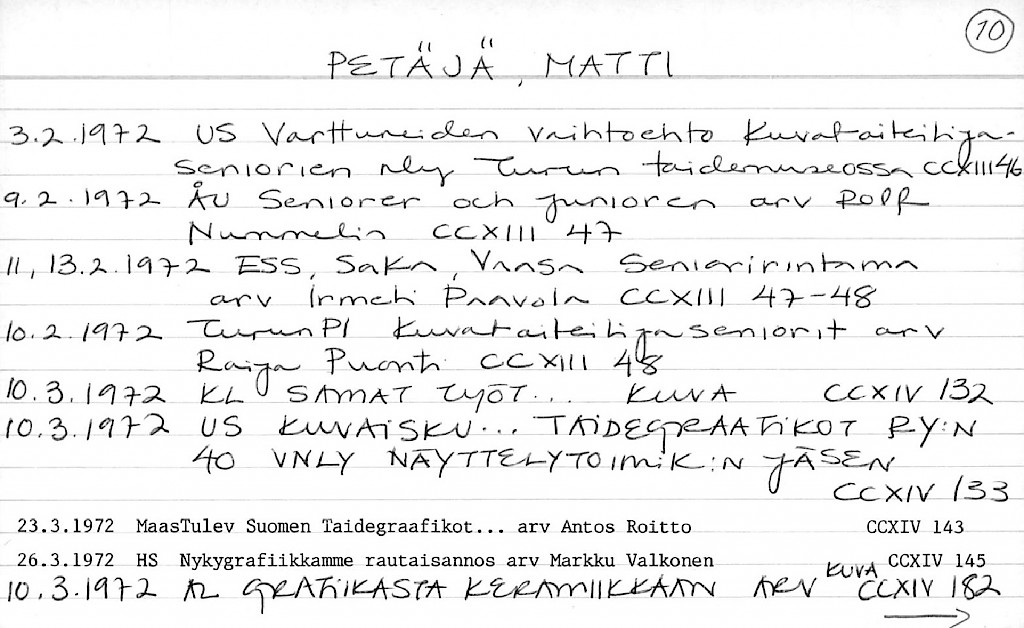 10
PETÄJÄ, MATTI
3.2.1972 US Varttuneiden vaihtoehto Kuvataiteilija-
seniorien nly Turun taidemuseossa CCXIII 46
9.2.1972 ÅU Seniorer och junioren arv ROPR
Nummelin CCXIII 47
11, 13.2.1972 ESS, SaKa, Vaasa Senioririntama
arv Irmeli Paavola CCXIII 47-48
10.2.1972 TurunPl Kuvataiteilijaseniorit arv
Raija Puonti CCXIII 48
10.3.1972 KL SAMAT TYÖT... KUVA CCXIV 132
10.3.1972 US KUVAISKU... TAIDEGRAAFIKOT RY:N
40 VNLY NÄYTTELYTOIMIK:N JÄSEN
CCXIV 133
23.3.1972 MaasTulev Suomen Taidegraafikot... arv Antos Roitto CCXIV 143
26.3.1972 HS Nykygrafiikkamme rautaisannos arv Markku Valkonen CCXIV 145
10.3.1972 AL GRAFIIKASTA KERAMIIKKAAN ARV KUVA CCXIV 182